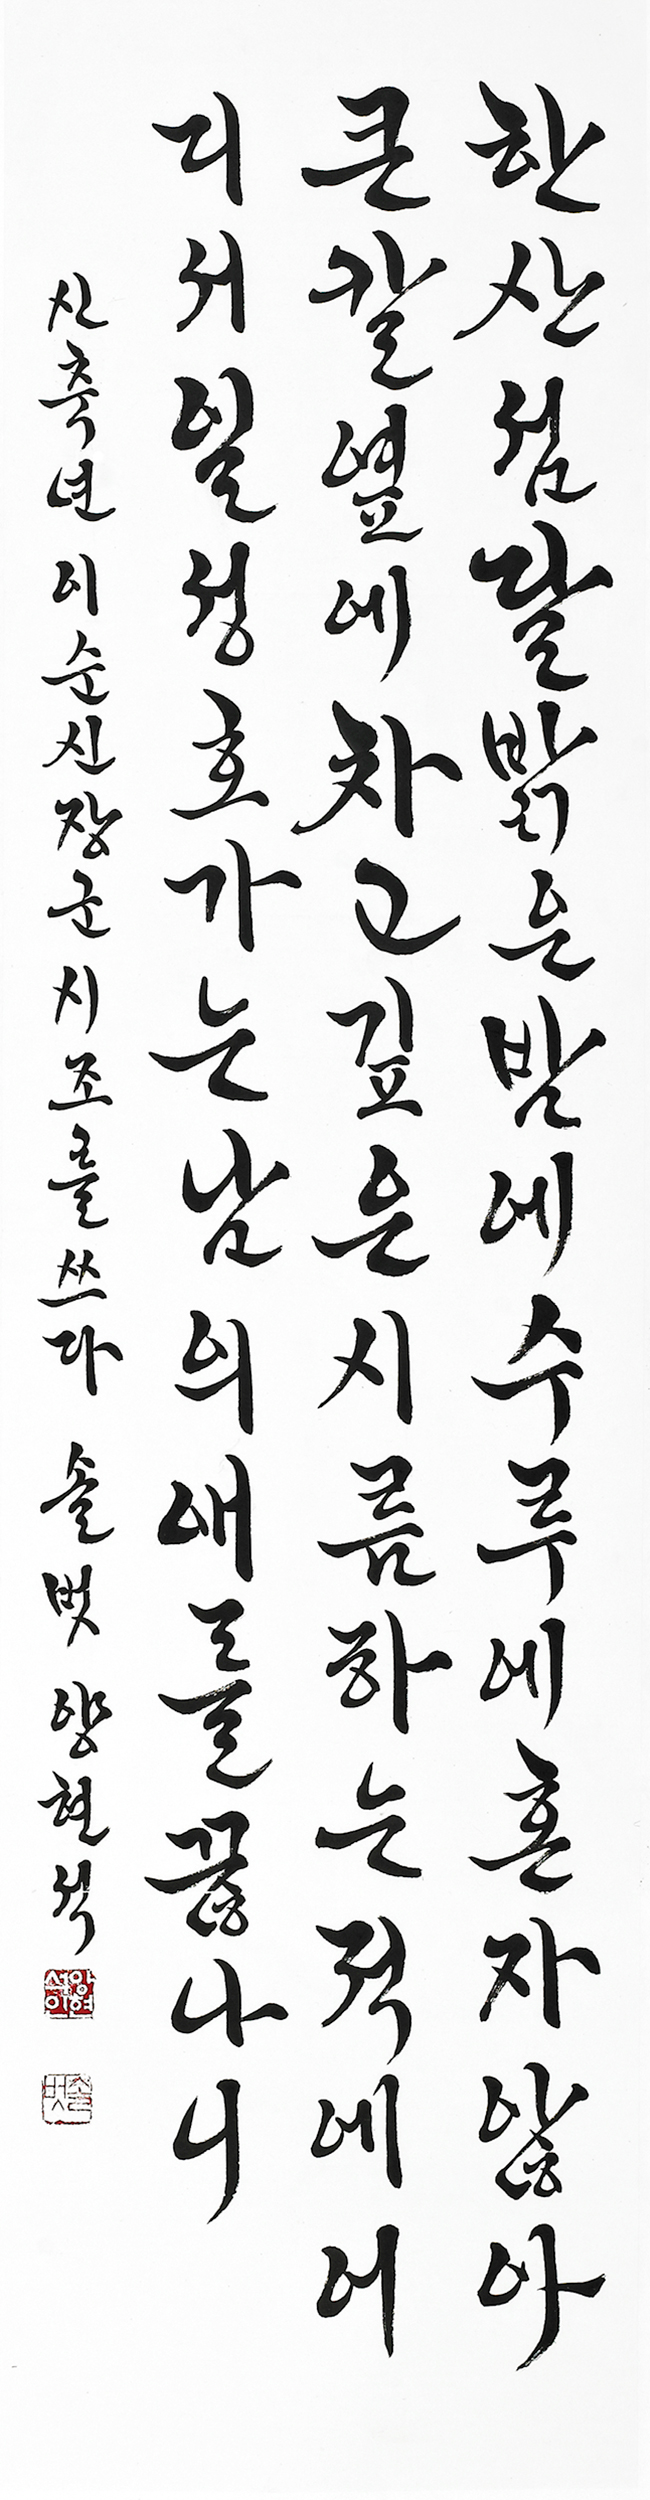 한산섬달밝은밤에수루에혼자않아
큰칼옆에차고깊은시름하는적에어
디서일성호가는남의애를끊나니
신축년 이순신장군 시조를 쓰다 솔벗 양현석
양현석인
솔벗